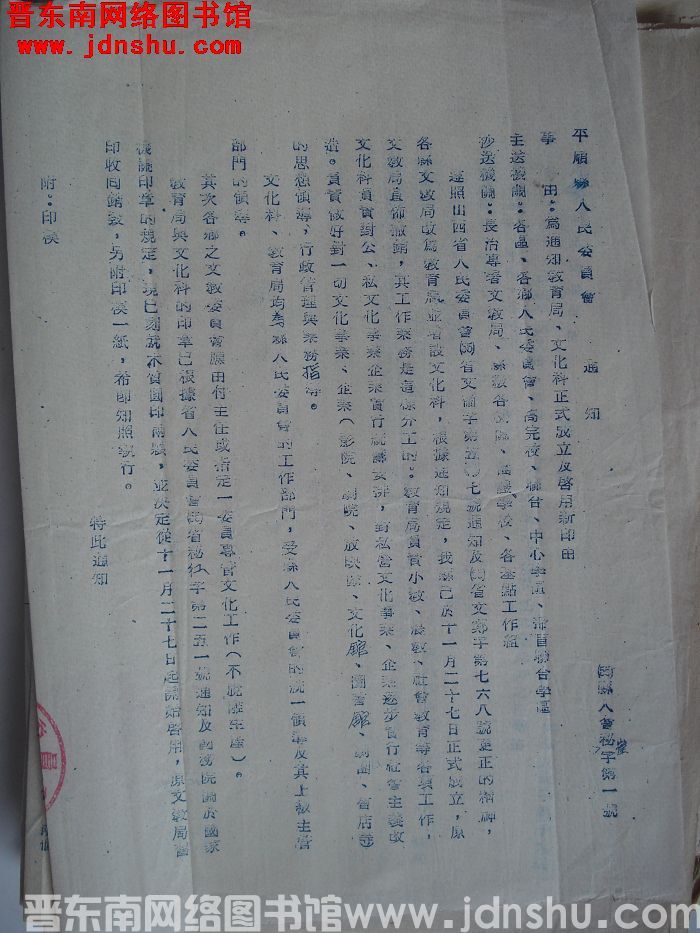 晋东南网络图书馆
www.jdnshu.com
平順縣人民委員會 通知
縣人會秘字第一號
事由：為通知教育局、文化科正式成立及啓用新印由
主送機關：各區、各鄉人民委員會、高完校、聯合、中心學區、聯合學區
抄送機關：長治專署文教局、縣級各機關、學校、各基點工作組
遵照山西省人民委員會省文辦字第七號通知及省文鄭字第七六八號更正的精神，
各縣文教局改為教育局並增設文化科，根據通知規定，我縣已於十一月二十七日正式成立，原
文教局宣佈撤銷，其工作業務是這樣分工的：教育局負責小教、業教、社會教育等各項工作，
文化科負責對公、私文化事業企業實行統籌安排，對私營文化事業、企業逐步實行社會主義改
造。負責做好對一切文化事業、企業（影院、劇院、放映隊、文化館、圖書館、劇團、書店等）
的思想領導，行政管理與業務指導。
文化科、教育局均為縣人民委員會的工作部門，受縣人民委員會的統一領導及其上級主管
部門的領導。
其次各鄉之文教委員會應由付主任或指定一委員專管文化工作（不脫離生產）。
教育局與文化科的印章已根據省人民委員會省秘紅字第二五一號通知及國務院關於國家
機關印章的規定，現已刻就木質圓印兩顆，並決定從十一月二十七日起開始啓用，原文教局舊
印收回銷毀，另附印模一紙，希即知照執行。
特此通知
附：印模
晋东南网络图书馆 www.jdnshu.com